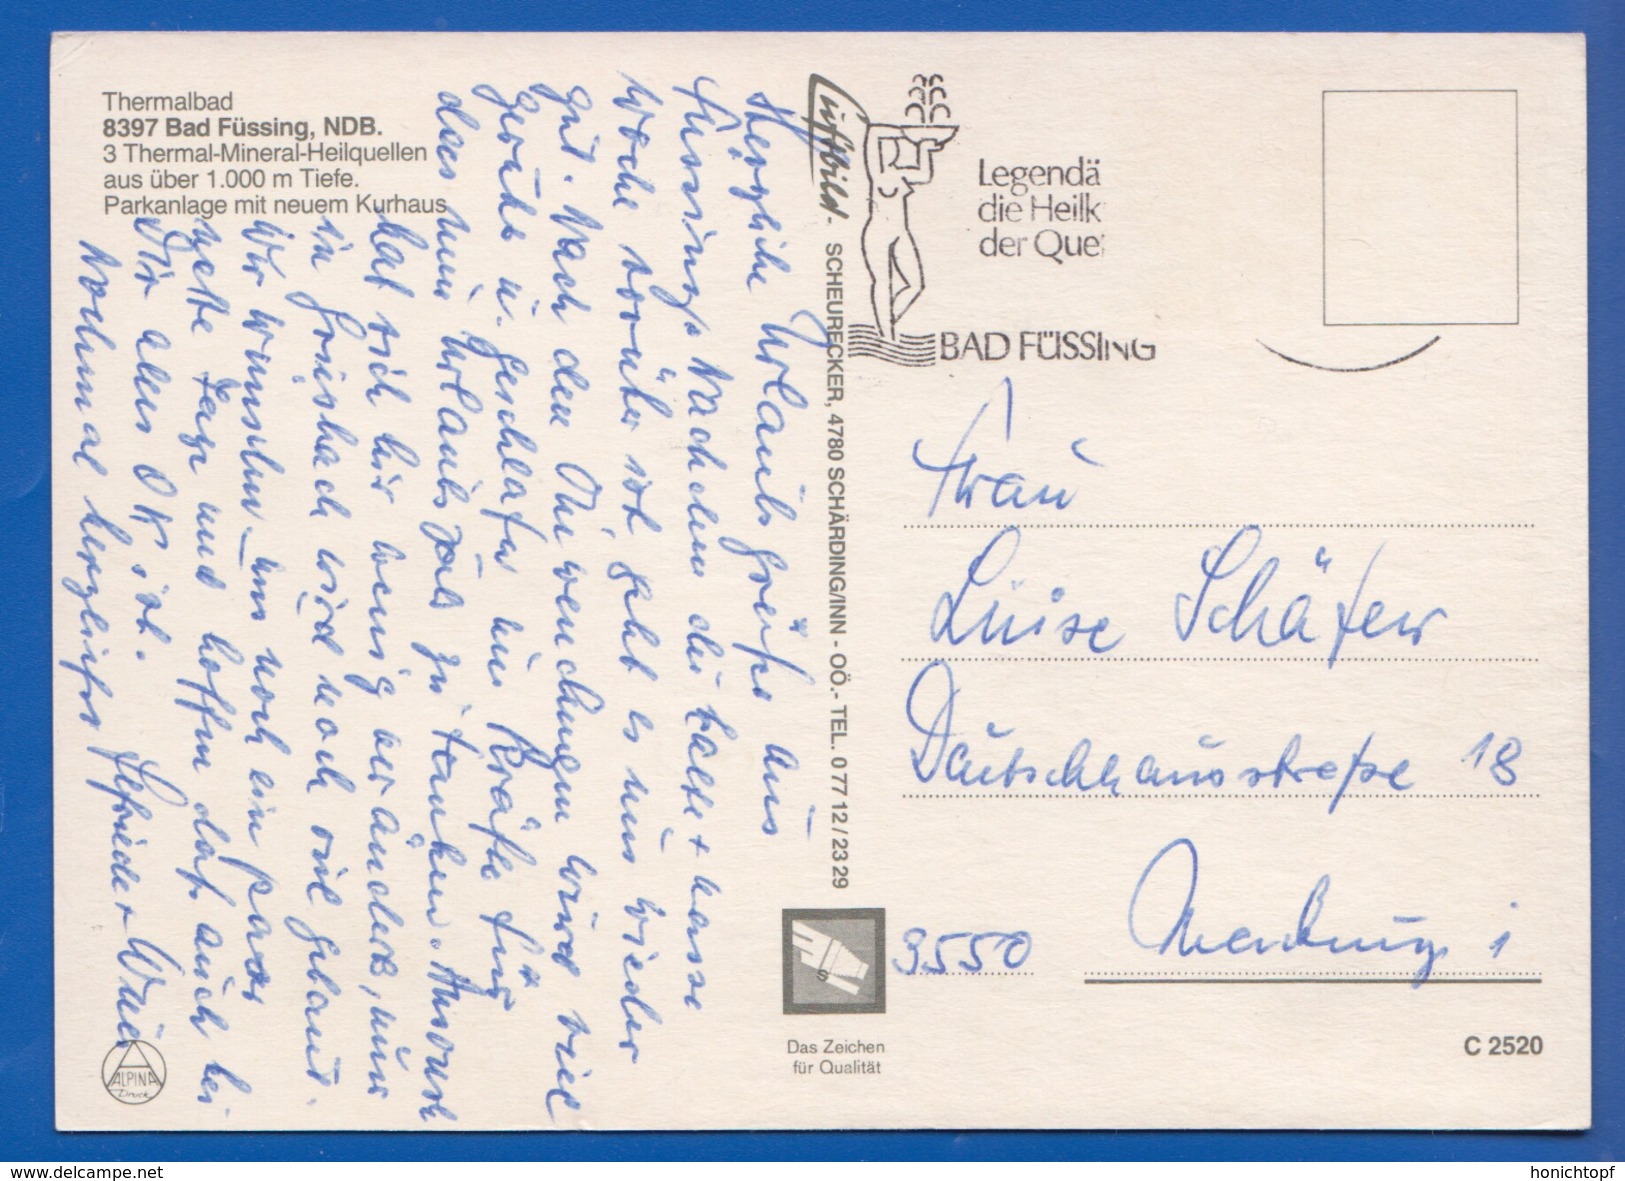 Thermalbad
8397 Bad Füssing, NDB.
3 Thermal-Mineral-Heilquellen
aus über 1.000 m Tiefe.
Parkanlage mit neuem Kurhaus
Herzliche Urlaubsgrüße aus
Füssing. Nachdem die kalte + nasse
Woche vorüber ist geht es uns wieder
gut. Nach den Anwendungen wird viel
geruht u. geschlafen um Kräfte für
den neuen zu tanken. Ansonst
hat sich hier wenig verändert, nur
in Griesbach wird noch viel gebaut.
Wir wünschen uns noch ein paar
nette Tage und hoffen daß auch bei
Dir alles OK ist.
nochmal herzlichst Elfriede +
Luftbild - SCHEURECKER, 4780 SCHÄRDING/INN - OÖ.- TEL. 0 77 12 / 23 29
Legendä
die Heilk
der Que
BAD FÜSSING
Frau
Luise Schäfer
Deutschhausstraße 18
3550 Marburg i
Das Zeichen
für Qualität
C 2520
ALPINA
Druck
www.delcampe.net
honichtopf